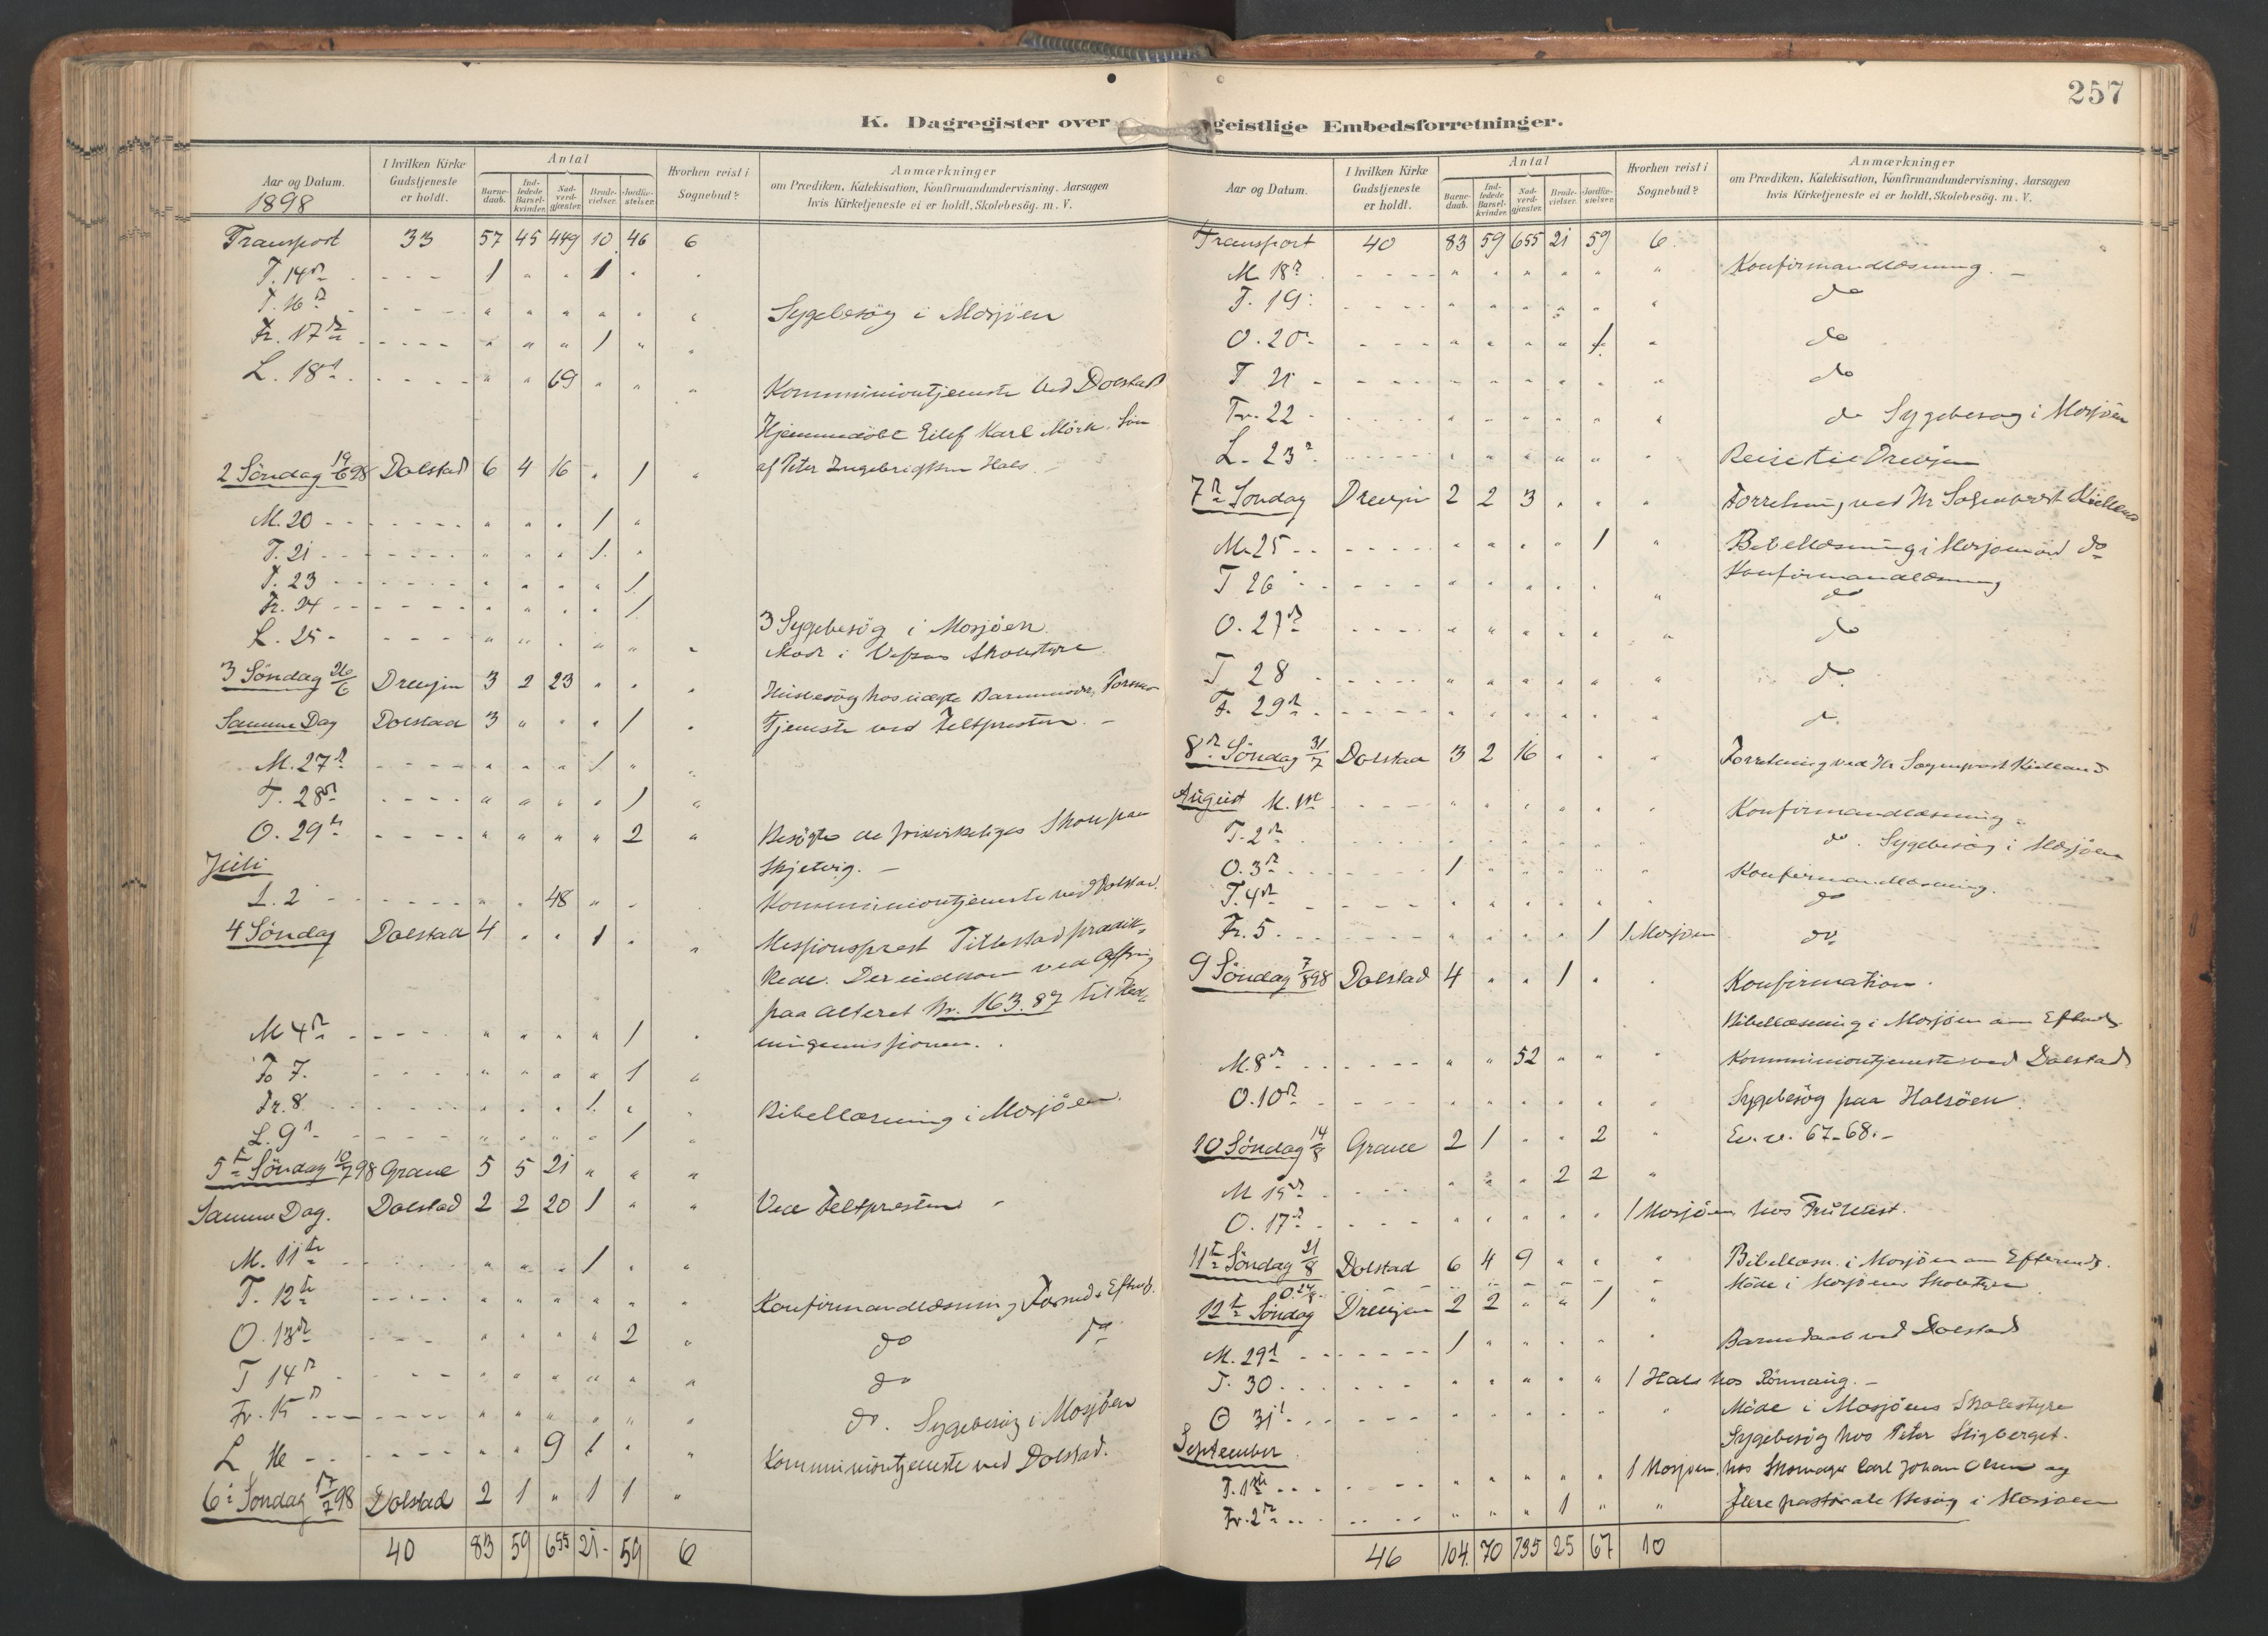 257
K. Dagregister over geistlige Embedsforretninger.
Aar og Datum. I hvilken Kirke Gudstjeneste er holdt. Antal Barne-daab. Ind-ledede Barsel-kvinder. Nad-verd-gjæster. Brude-vielser. Jordfæ-stelser. Hvorhen reist i Sognebud? Anmærkninger om Prædiken, Katekisation, Konfirmandundervisning. Aarsagen hvis Kirketjeneste ei er holdt, Skolebesög. m. V.
1898
Transport 33 57 45 449 10 46 6
T. 14de - - - 1 " " 1 "
T. 16de - - - " " " " " " Sygebesög i Mosjöen
Fr. 17de - - - - " " " 1 " "
L. 18de - - - - " " 69 " " " Kommuniontjeneste ved Dolstad
Hjemmedöbt Eilef Karl Mörk, Sön
2 Söndag 19/6 98 Dolstad 6 4 16 " 1 " af Peter Ingebrigtsen Hals. -
M. 20 - - - - " " " 1 "
T. 21 - - - - " " " 1. "
T. 23 - - - - " " " " 1.
Fr. 24 - - - - " " " " 1. 3 Sygebesög i Mosjöen
L. 25 - - - - " " " " " " Möde i Vefsns Skolestyre
3 Söndag 26/6 Drevjen 3 2 23 " " " Husbesög hos uægte Barnemoder, Forsmo
Samme Dag Dolstad 3 " " " 1 " Tjeneste ved Feltpresten. -
M. 27de - - - - " " " 1 " "
T. 28de - - - - " " " " 1 "
O. 29de - - - - " " " " 2 " Besögte de frikirkeliges Skole paa
Juli Skjelvig. -
L. 2 - - - - " " 48 " " Kommuniontjeneste ved Dolstad.
4 Söndag Dolstad 4 " " 1 " " Missjonsprest Tillestad prædik-
kede. Der indkom ved Offring
paa Alteret Kr. 163.87 til Hed-
M 4de - - - - " " " " 1 " ningemissjonen.
To 7. - - - - " " " " 1 "
Fr. 8 - - - - " " " 1. " " Bibellæsning i Mosjöen.
L. 9de - - - - " " " " 1 "
5te Söndag 10/7 98 Grane 5 5 21 " " "
Samme Dag. Dolstad 2 2 20 1 " " Ved Feltpresten -
M. 11te - - - - " " " 1 " "
T. 12te - - - - " " " " " " Konfirmandlæsning Formd & Eftmd.
O. 13de - - - " " " " 2 " do do
T 14de - " " " " " " do
Fr. 15de - - - - " " " " " " do. Sygebesög i Mosjöen
L 16 - - - - " " 9 1 " " Kommuniontjeneste ved Dolstad.
6te Söndag 17/7 98 Dolstad 2 1 " 1 1 "
40 83 59 655 21 - 59 6
Aar og Datum. I hvilken Kirke Gudstjeneste er holdt. Antal Barne-daab. Ind-ledede Barsel-kvinder. Nad-verd-gjæster. Brude-vielser. Jordfæ-stelser. Hvorhen reist i Sognebud? Anmærkninger om Prædiken, Katekisation, Konfirmandundervisning. Aarsagen hvis Kirketjeneste ei er holdt, Skolebesög. m. V.
Transport 40 83 59 655 21 59 6
M. 18de - - - - " " " " " " Konfirmandlæsning. -
T. 19. - - - - " " " " " " do
O. 20 - - - - " " " " 1. " do
T 21 - - - - " " " " " " do
Fr. 22 - - - - " " " " " " do Sygebesög i Mosjöen
L. 23de - - - - " " " " " " Reise til Drevjen
7de Söndag Drevjen 2 2 3 " " " Forretning ved Hr Sogneprest Kielland
M. 25 - - - - " " " " 1 " Bibellæsning i Mosjöen ved do
T 26 - - - - " " " " " Konfirmandlæsning
" do
O. 27de - - - - " " " " " " do
T 28 - - - - " " " " " " do.
F. 29de - - - - " " " " " " do.
8de Söndag 31/7 Dolstad 3 2 16 " " " Forretning ved Hr Sogneprest Kielland
August M. 1ste - - - - " " " " " " Konfirmandlæsning -
T. 2den - - - - " " " " " " do. Sygebesög i Mosjöen
O. 3de - - - - 1 " " " " " Konfirmandlæsning.
T. 4de - - - - " " " " " " do
Fr. 5. - - - - " " " " 1 1 Mosjöen do
9 Söndag 7/8 98 Dolstad 4 " " 1 " " Konfirmation.
Bibellæsning i Mosjöen om Eftmd.
M. 8de - - - - " " 52 " " " Kommuniontjeneste ved Dolstad
O. 10de - - - - " " " " " " Sygebesög paa Halsöen.
10 Söndag 14/8 Grane 2 1 " " 2 " Ev. v. 67-68. -
M 15de - - - - " " " 2 2 "
O. 17de - - - - " " " " " 1 Mosjöen hos Fru
11te Söndag 21/8 Dolstad 6 4 9 " " " Bibellæsn. i Mosjöen om Efterm.
O 24/8. - - - - Möde i Mosjöens Skolestyre
12te Söndag Drevjen 2 2 " " 1 "
M. 29de - - - - 1 " " " " " Barnedaab ved Dolstad
T. 30. - - - " " " " " 1 Hals hos Rönnaug. -
O 31te - - - - " " " " " " Möde i Mosjöens Skolestyre
September Sygebesög hos Peter Stigberget.
T. 1ste - - - - " " " " " 1 Mosjöen, hos Skomager Carl Johan Olsen og
Fr. 2den - - - - " " " 1 " " flere pastorale Besög i Mosjöen
46 104. 70 735 25 67 10